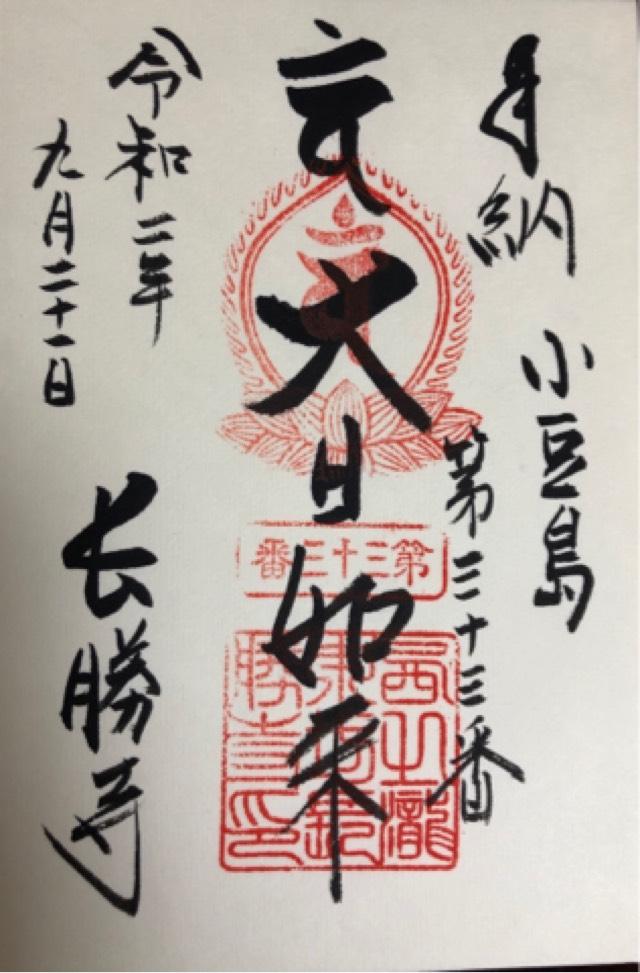 奉納
小豆島
第三十三番
大日如来
第三十三番
令和二年
九月二十一日
長勝寺